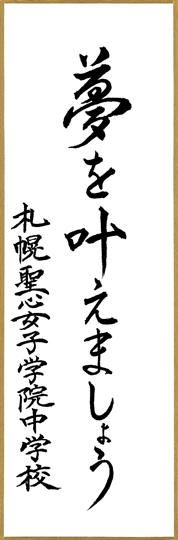 夢を叶えましょう
札幌聖心女子学院中学校